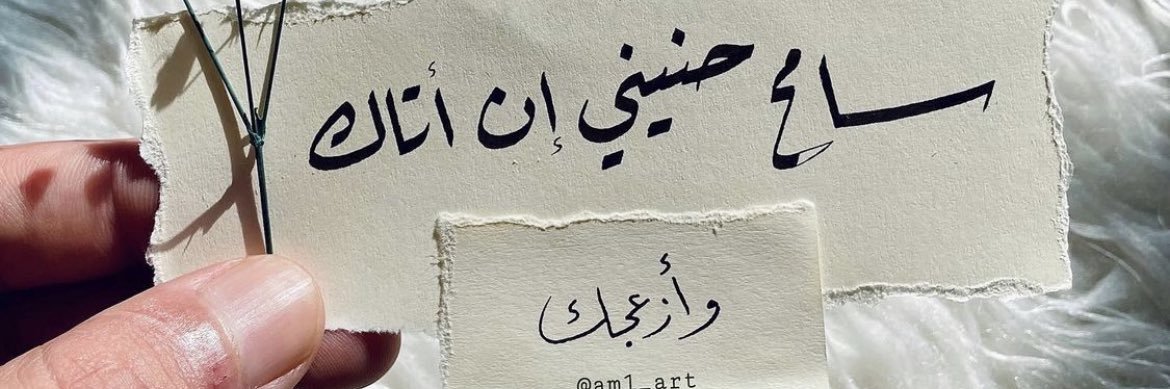 سامح حنيني إن أتاك
وأزعجك
@am1_art